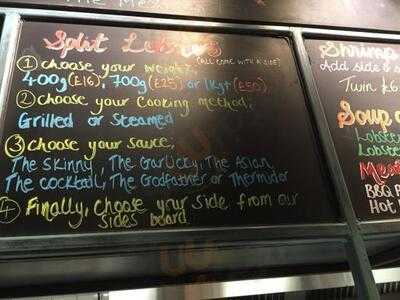 The Me
Split Lobsters
① choose your weight, (ALL COME WITH A SIDE)
400g (£16), 700g (£25) or 1kg+ (£50).
② choose your cooking method,
Grilled or Steamed
③ choose your sauce,
The Skinny, The Garlicky, The Asian,
The cocktail, The Godfather or Thermidor
④ Finally, Choose your side from our
sides board.
Shrimp
Add side &
Twin £6
Soup
Lobste
Lobste
Mea
BBQ
Hot